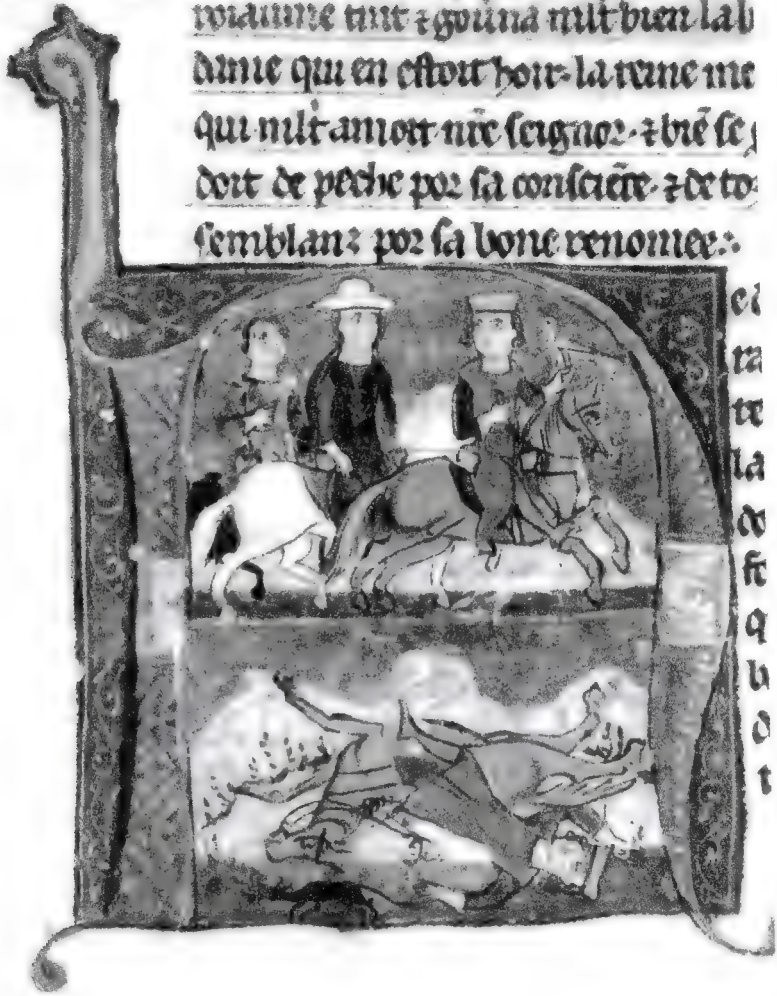 roiaume tint ⁊ gouna mlt bien la b
dame qui en estoit hoir· la reine me
qui mlt amoit nr̄e seignor· ⁊ biē se
doit de peche por sa consciēce· ⁊ de to
semblanz por sa bone renomee·:
el
ra
te
la
do
st
q
b
d
t